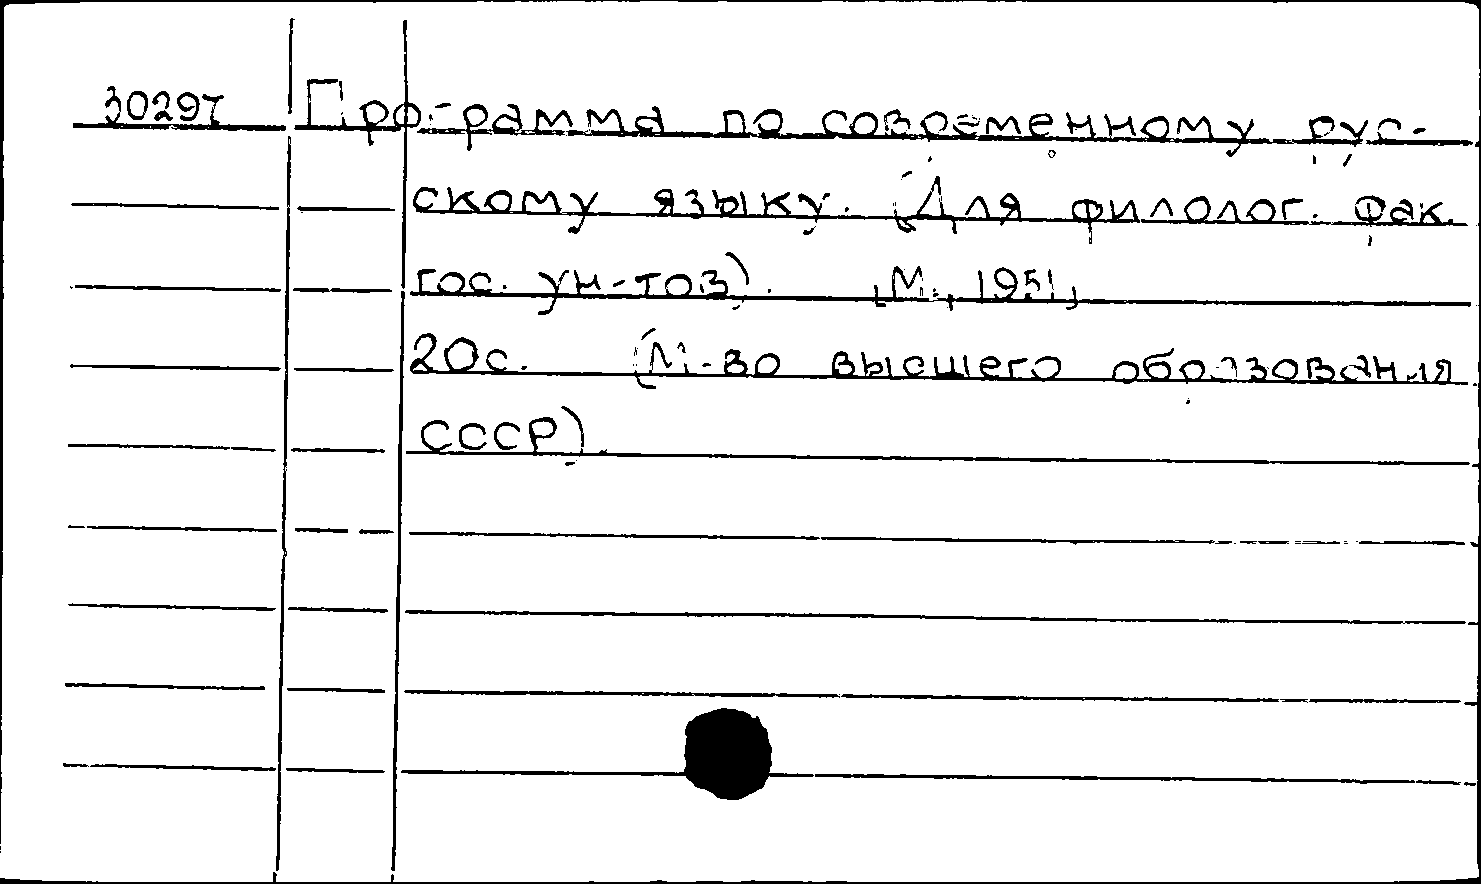 30297 Программа по современному рус-
скому языку. (Для филолог. фак.
гос. ун-тов). М., 1951,
20с. (М-во высшего образования
СССР).